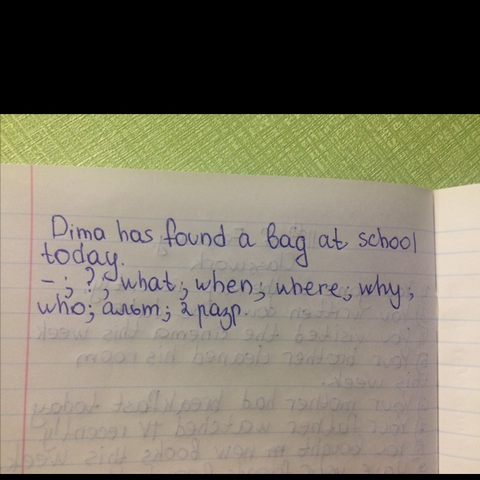 Dima has found a bag at school
today.
– ; ? ; what ; when ; where ; why ;
who ; альт ; 2 разр.